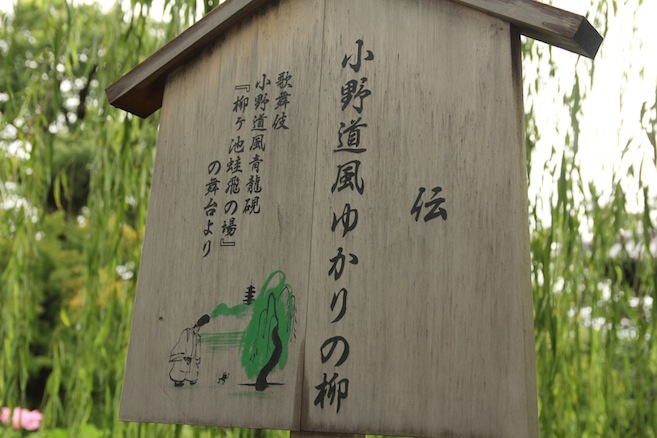 伝
小野道風ゆかりの柳
歌舞伎
小野道風青龍硯
『柳ヶ池蛙飛の場』
の舞台より